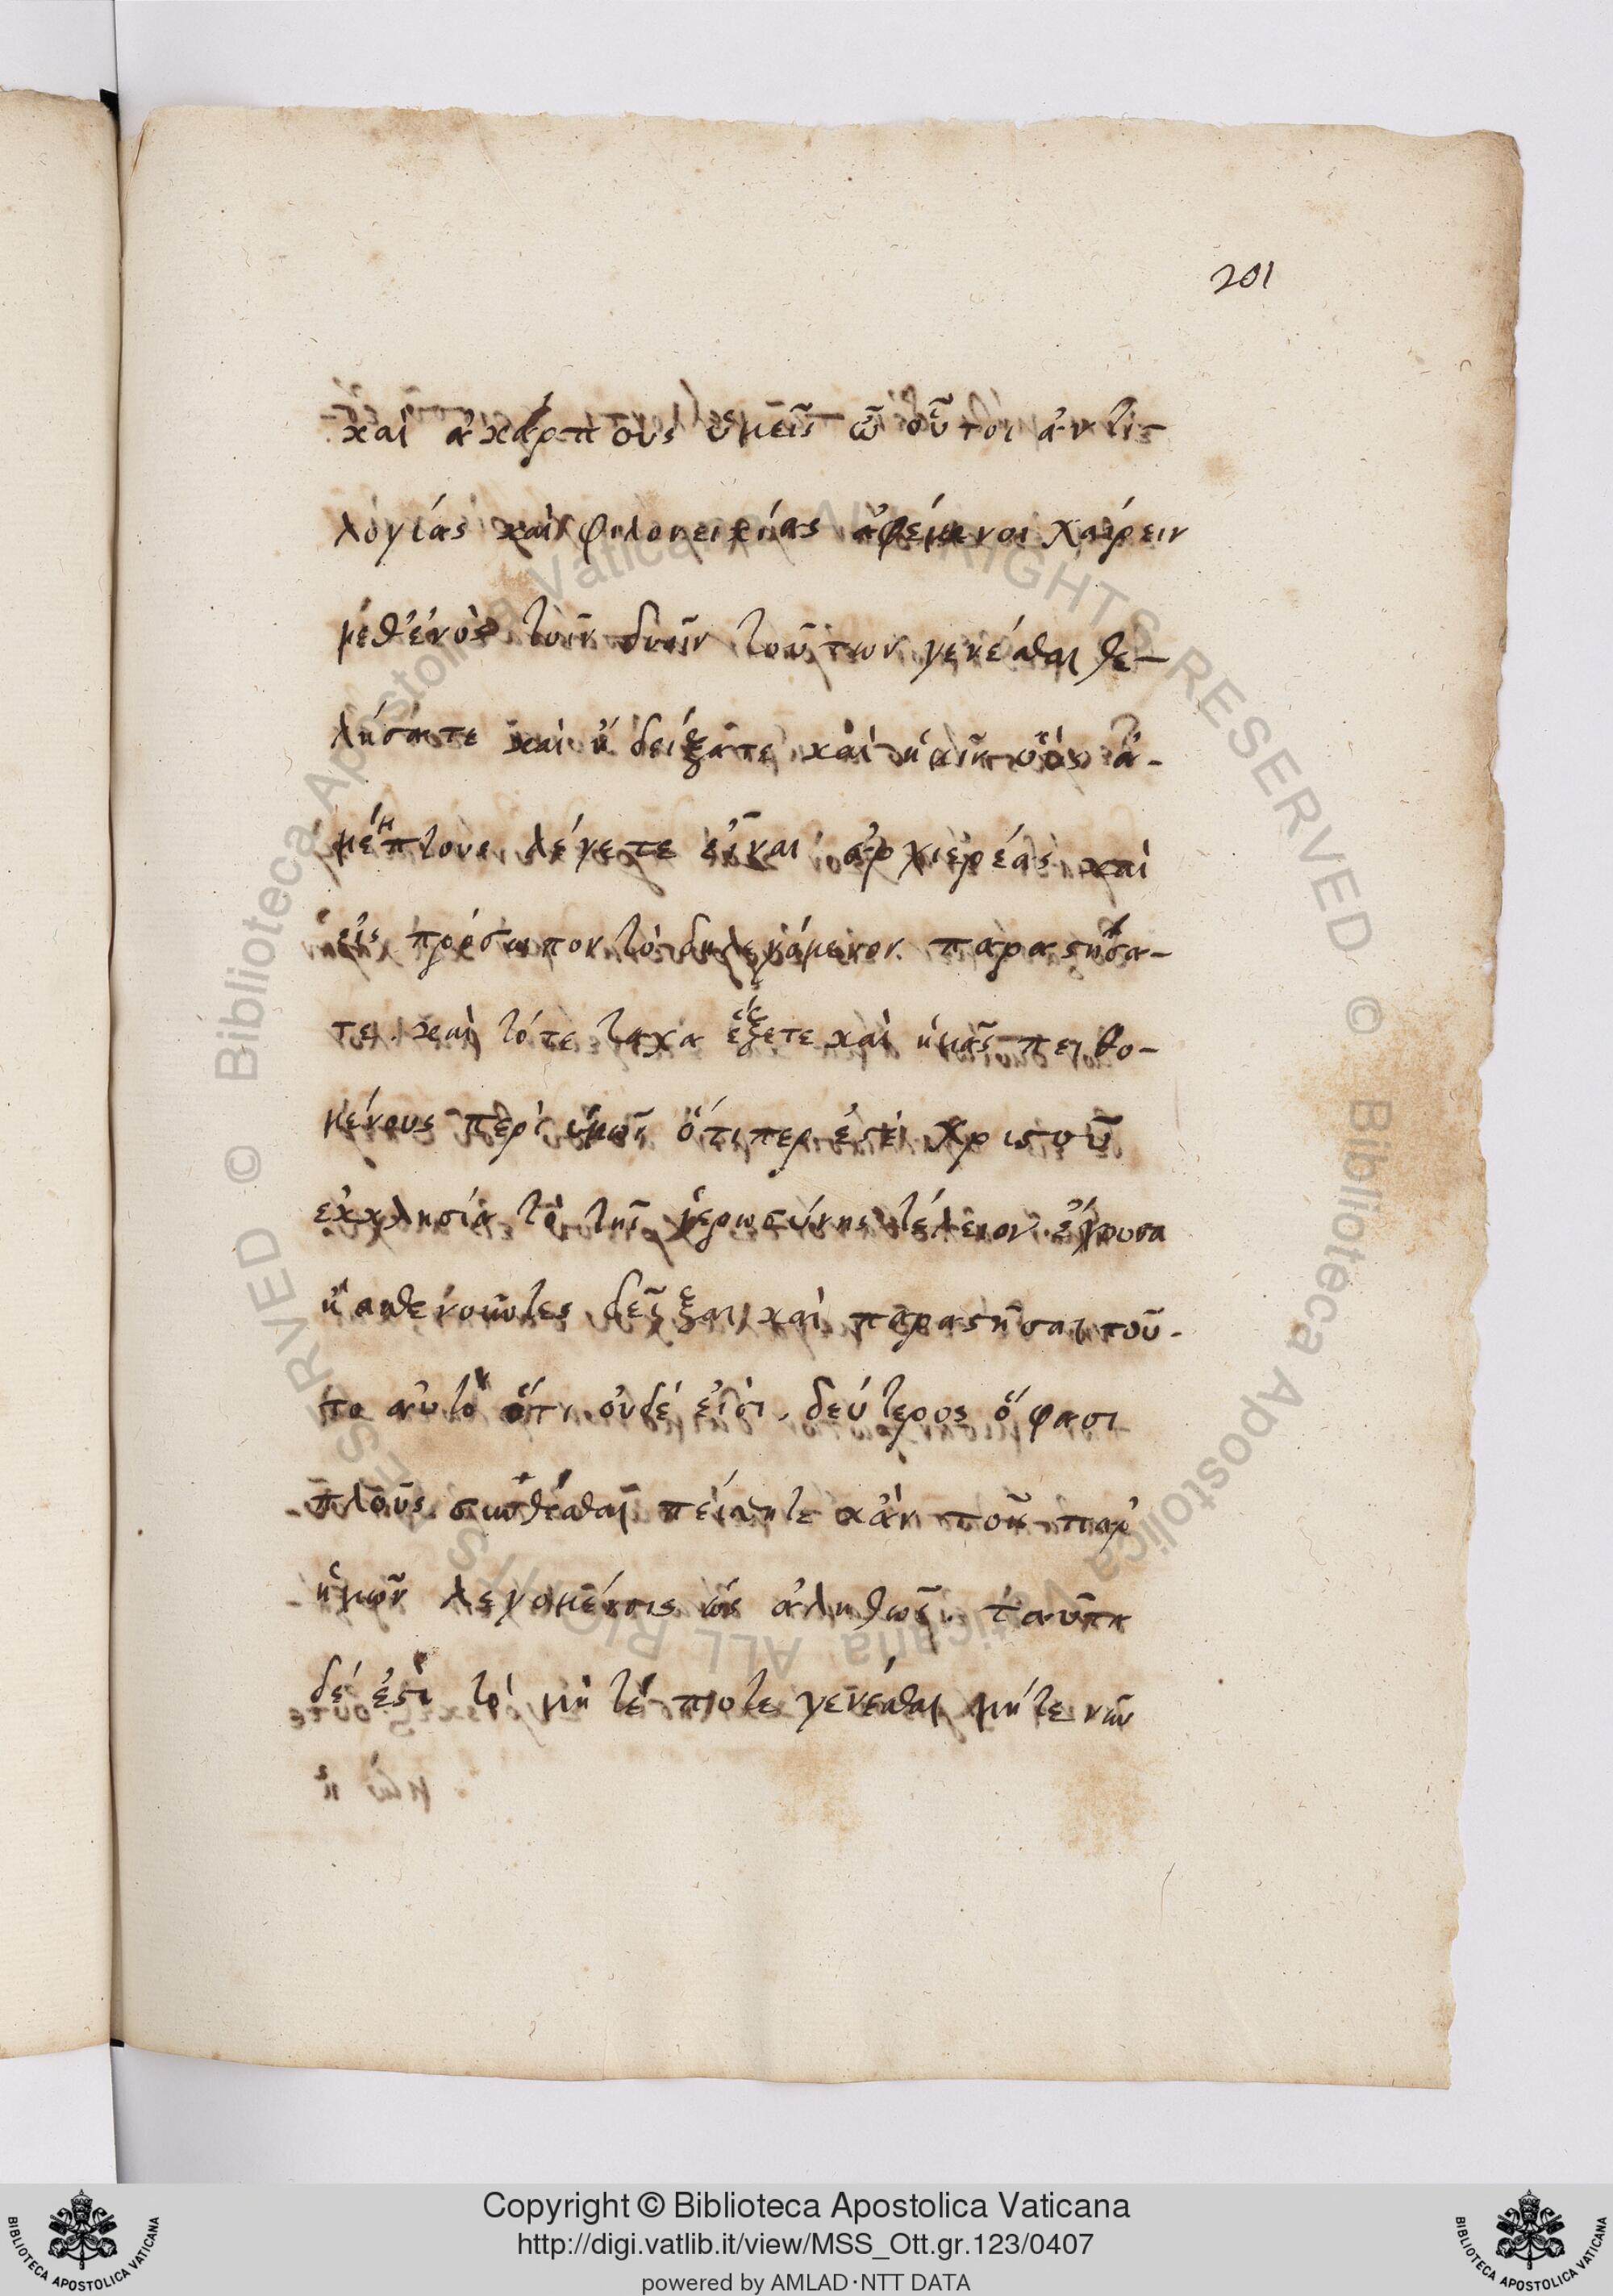 201
καὶ ἀκάρπους ὑμεῖς ὦ οὗτοι ἀντι-
λογίας καὶ φιλονεικίας ἀφέμενοι χαίρειν
μεθ' ἑνὸς τοῖν δυοῖν τούτων γενέσθαι θε-
λήσατε καὶ ἢ δείξατε καὶ ἡμῖν οὓς ἀ-
μέμπτους λέγετε εἶναι ἀρχιερέας καὶ
εἰς πρόσωπον τὸ λεγόμενον παραστήσα-
τε. καὶ τότε ταχα ἕξετε καὶ ἡμᾶς πειθο-
μένους περὶ ὑμῶν ὅτιπερ ἐστὶ χριστοῦ
ἐκκλησία τὸ τῆς ἱερωσύνης τέλειον ἔχουσα
ἢ ασθενοῦντες δεῖξαι καὶ παραστῆσαι τοῦ-
το αὐτὸ ὅτι οὐδέ εἰσι. δεύτερος ὅ φασι
πλοῦς συνθέσθαι πείσθητε κἂν τοῖς παρ'
ἡμῶν λεγομένοις ὡς ἀληθῶς. ταῦτα
δέ ἐστι τὸ μὴ τέ ποτε γενέσθαι μήτε νῦν
Copyright © Biblioteca Apostolica Vaticana
http://digi.vatlib.it/view/MSS_Ott.gr.123/0407
powered by AMLAD·NTT DATA
BIBLIOTECA APOSTOLICA VATICANA
BIBLIOTECA APOSTOLICA VATICANA
© Biblioteca Apostolica Vaticana ALL RIGHTS RESERVED
© Biblioteca Apostolica Vaticana ALL RIGHTS RESERVED